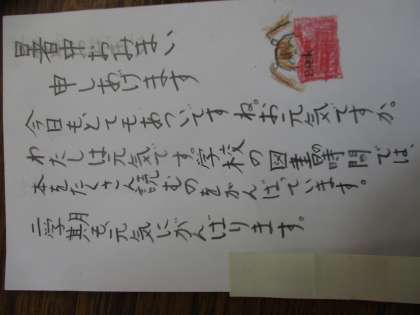 暑中おみまい
申しあげます
今日もとてもあついですね。お元気ですか。
わたしは元気です。学校の図書時間では、
本をたくさん読むのをがんばっています。
二学期も元気にがんばります。